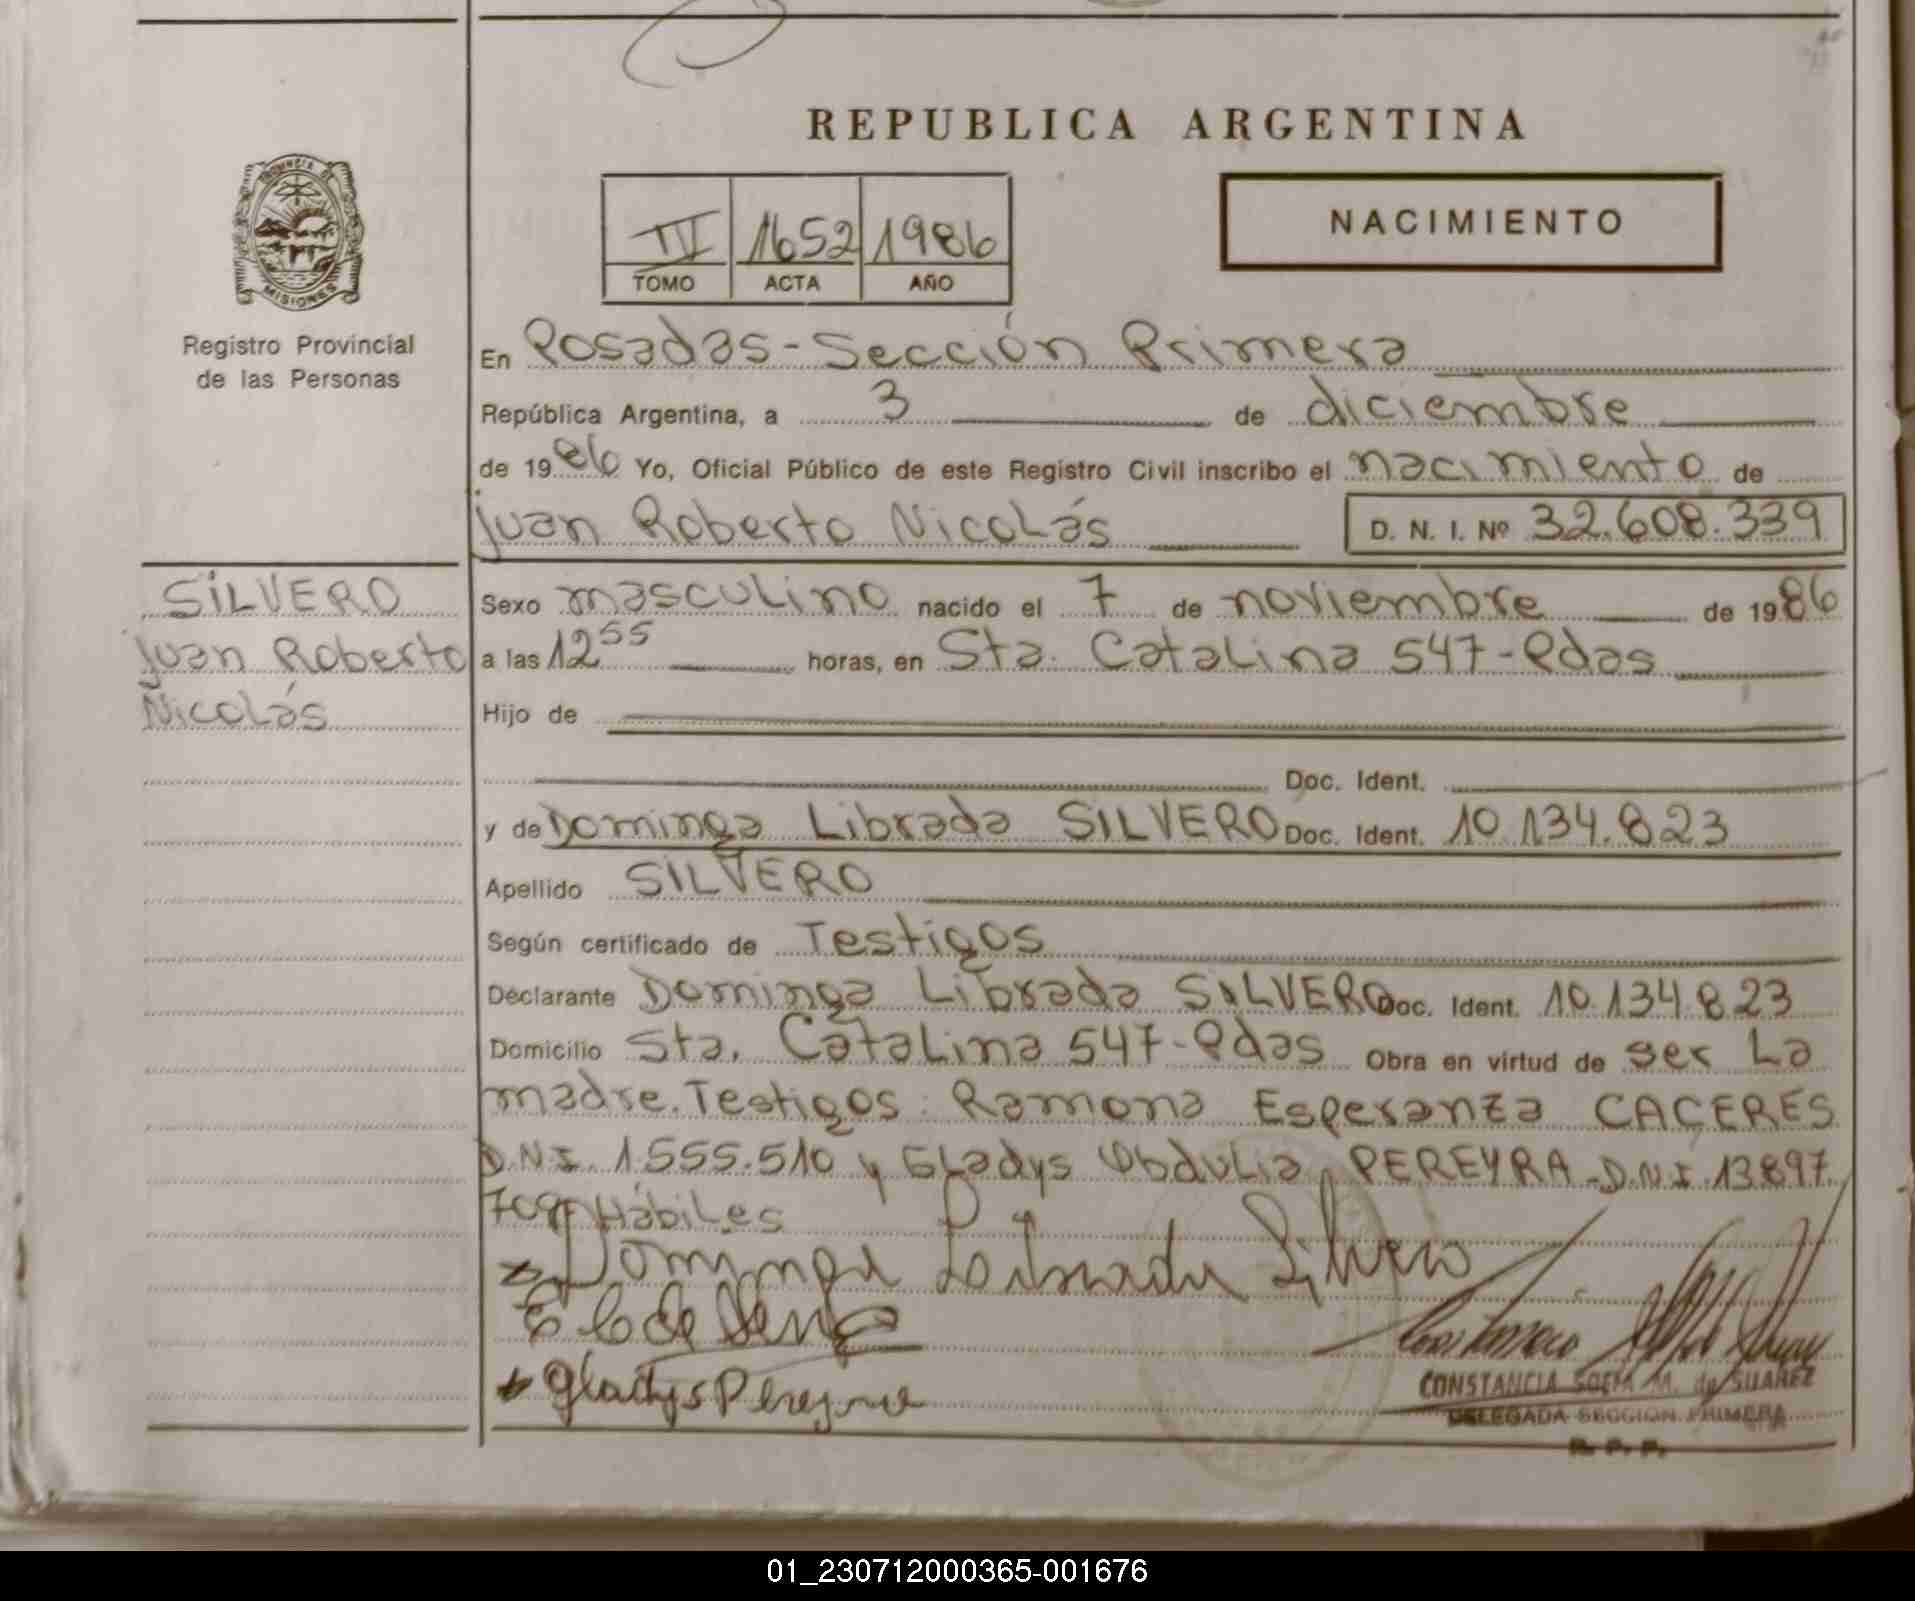 REPUBLICA ARGENTINA
PROVINCIA DE
MISIONES
Registro Provincial
de las Personas
III 1652 1986
TOMO ACTA AÑO
NACIMIENTO
En Posadas-Sección Primera
República Argentina, a 3 de diciembre
de 1986 Yo, Oficial Público de este Registro Civil inscribo el nacimiento de
Juan Roberto Nicolás D. N. I. Nº 32.608.339
SILVERO
Juan Roberto
Nicolás
Sexo masculino nacido el 7 de noviembre de 1986
a las 12 55 horas, en Sta. Catalina 547-Pdas
Hijo de
Doc. Ident.
y de Dominga Librada SILVERO Doc. Ident. 10.134.823
Apellido SILVERO
Según certificado de Testigos
Declarante Dominga Librada SILVERO Doc. Ident. 10.134.823
Domicilio Sta. Catalina 547-Pdas Obra en virtud de ser La
madre. Testigos: Ramona Esperanza CACERES
D.N.I. 1.555.510 y Gladys Obdulia PEREYRA-D.N.I. 13.897.
Hábiles
Dominga Librada Silvero
Gladys Pereyra
CONSTANCIA SOFIA M. de SUAREZ
DELEGADA SECCION PRIMERA
R. P. P.
01_230712000365-001676